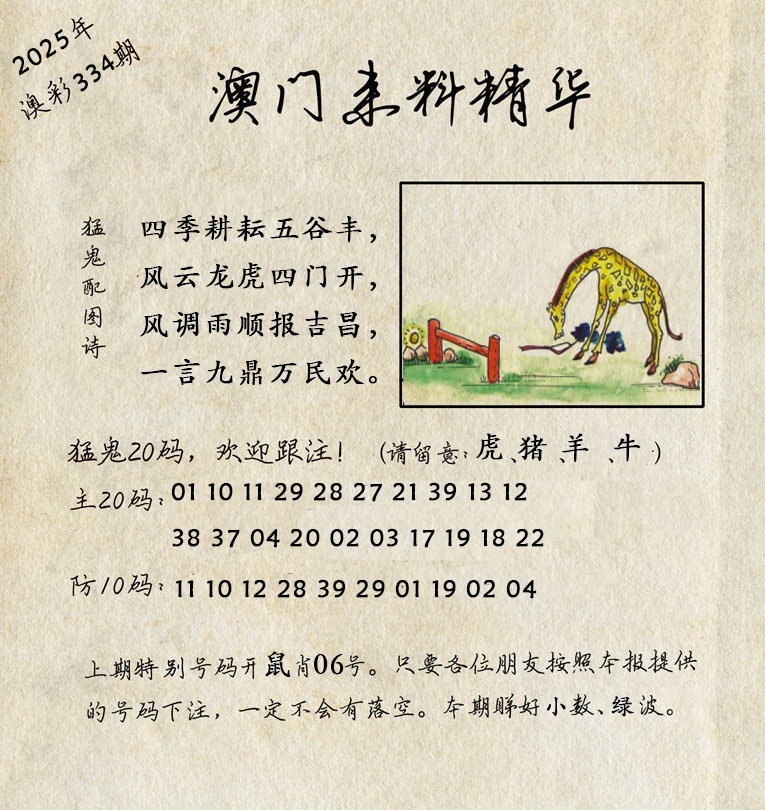 2025年
澳彩334期
澳门来料精华
猛鬼配图诗
四季耕耘五谷丰，
风云龙虎四门开，
风调雨顺报吉昌，
一言九鼎万民欢。
猛鬼20码，欢迎跟注！（请留意：虎、猪、羊、牛）
主20码：01 10 11 29 28 27 21 39 13 12
38 37 04 20 02 03 17 19 18 22
防10码：11 10 12 28 39 29 01 19 02 04
上期特别号码开鼠肖06号。只要各位朋友按照本报提供
的号码下注，一定不会有落空。本期睇好小数、绿波。